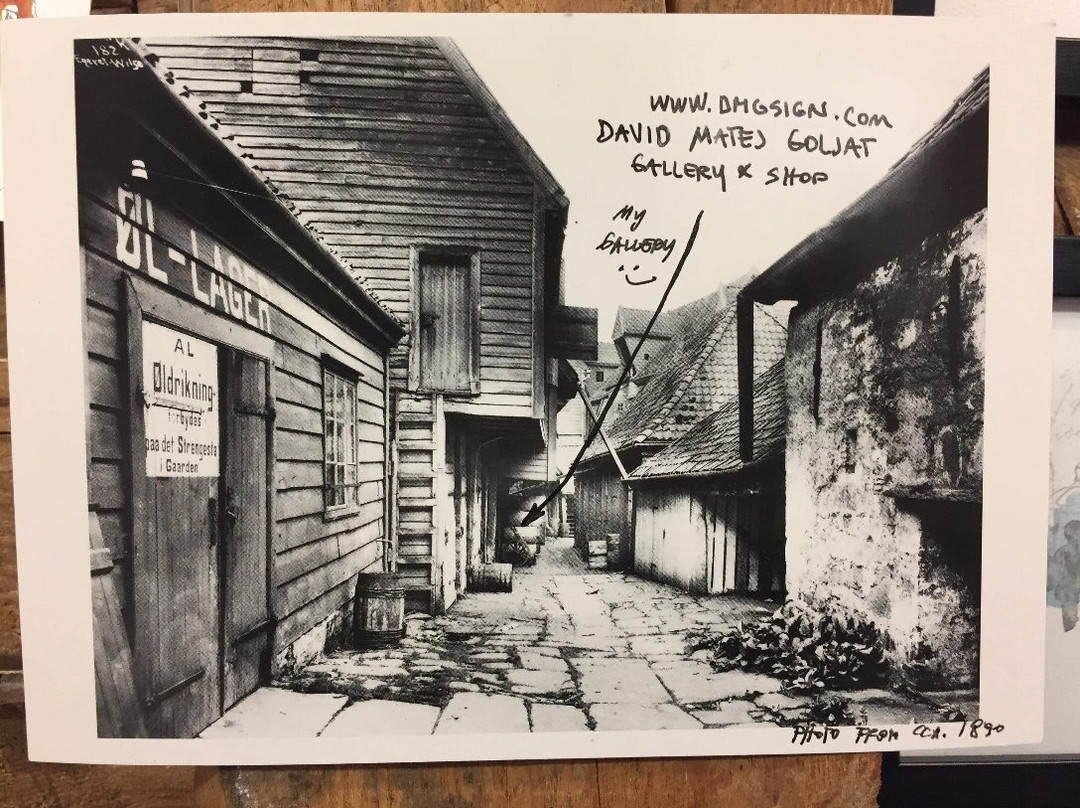 182
WWW.DMGSIGN.COM
DAVID MATEJ GOLJAT
GALLERY & SHOP
MY
GALLERY
ØL-LAGER
AL
Øldrikning
forbydes
paa det Strengeste
i Gaarden
PHOTO FROM CCA. 1890